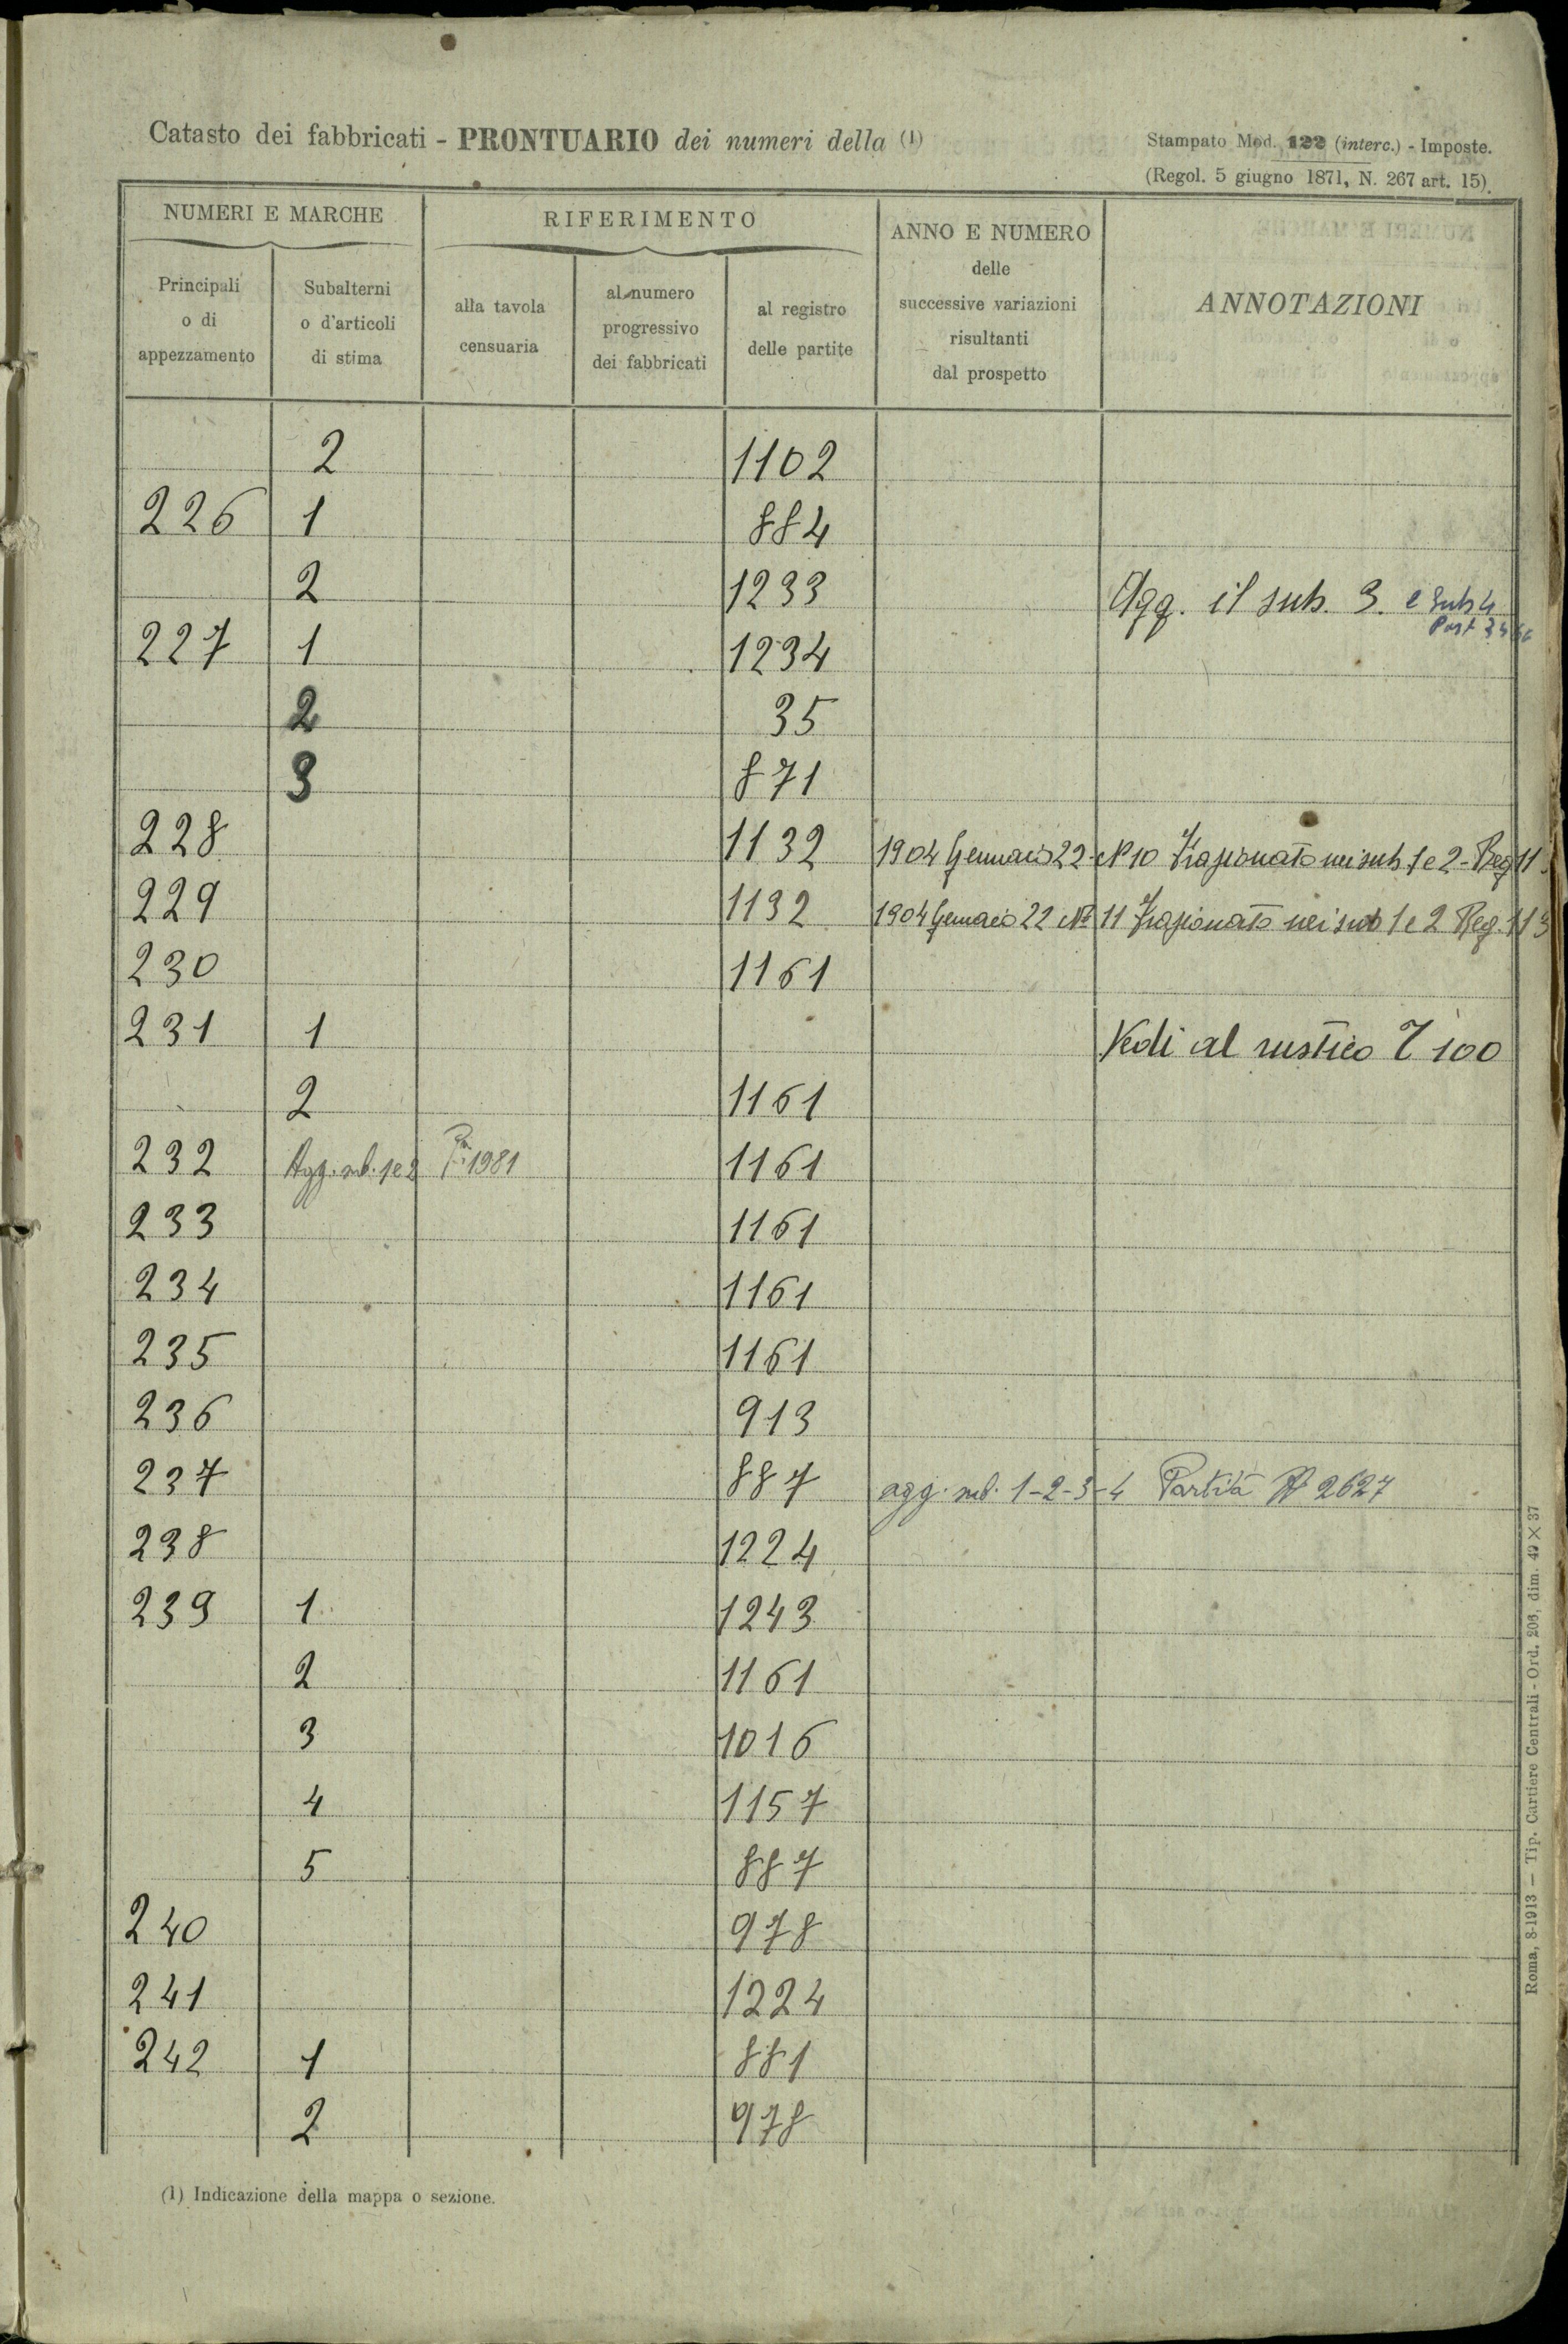 Catasto dei fabbricati - PRONTUARIO dei numeri della (1)
Stampato Mod. 122 (interc.) - Imposte.
(Regol. 5 giugno 1871, N. 267 art. 15).
NUMERI E MARCHE
RIFERIMENTO
ANNO E NUMERO
delle
successive variazioni
risultanti
dal prospetto
ANNOTAZIONI
Principali
o di
appezzamento
Subalterni
o d'articoli
di stima
alla tavola
censuaria
al numero
progressivo
dei fabbricati
al registro
delle partite
2 1102
226 1 884
2 1233 Agg. il sub. 3. e sub 4
Part
227 1 1234
2 35
3 871
228 1132 1904 Gennaio 22 - N° 10 Frazionato nei sub 1 e 2 - Reg 11
229 1132 1904 Gennaio 22 N° 11 Frazionato nei sub 1 e 2 Reg. 113
230 1161
231 1 Vedi al rustico 100
2 1161
232 Agg. sub. 1 e 2 1981 1161
233 1161
234 1161
235 1161
236 913
237 887 agg. sub. 1-2-3-4 Partita 2627
238 1224
239 1 1243
2 1161
3 1016
4 1157
5 887
240 978
241 1224
242 1 881
2 978
(1) Indicazione della mappa o sezione.
Roma, 8-1913 — Tip. Cartiere Centrali - Ord. 206, dim. 49 × 37